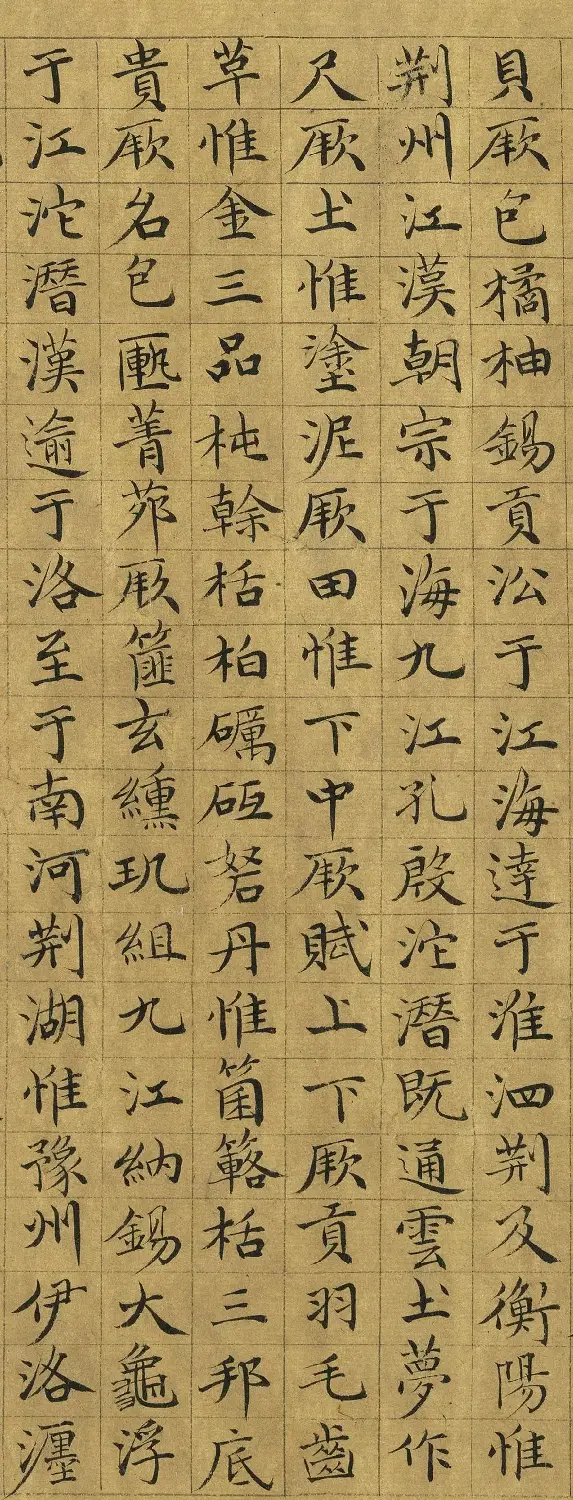 貝厥包橘柚錫貢㳂于江海達于淮泗荆及衡陽惟
荆州江漠朝宗于海九江孔殷沱潛既通雲土夢作
尺厥土惟塗泥厥田惟下中厥賦上下厥貢羽毛齒
草惟金三品杶榦栝柏礪砥砮丹惟箘簬栝三邦底
貴厥名包匭菁茆厥篚玄纁玑組九江納錫大龜浮
于江沱潛漢逾于洛至于南河荆湖惟豫州伊洛瀍